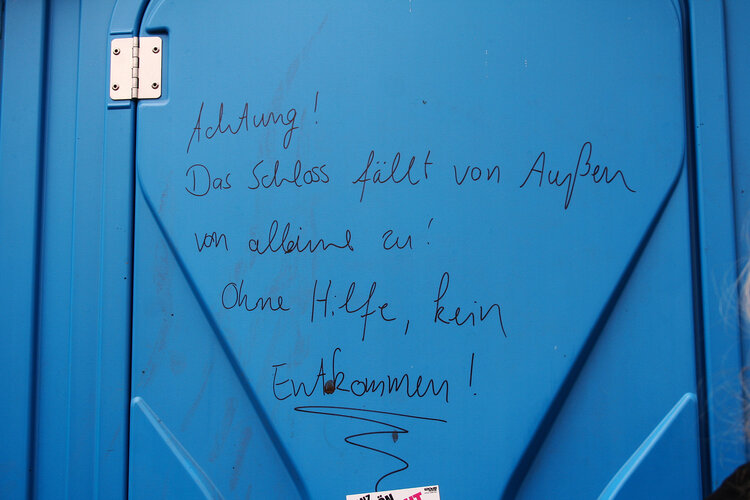 Achtung!
Das Schloss fällt von Außen
von alleine zu!
Ohne Hilfe, kein
Entkommen!